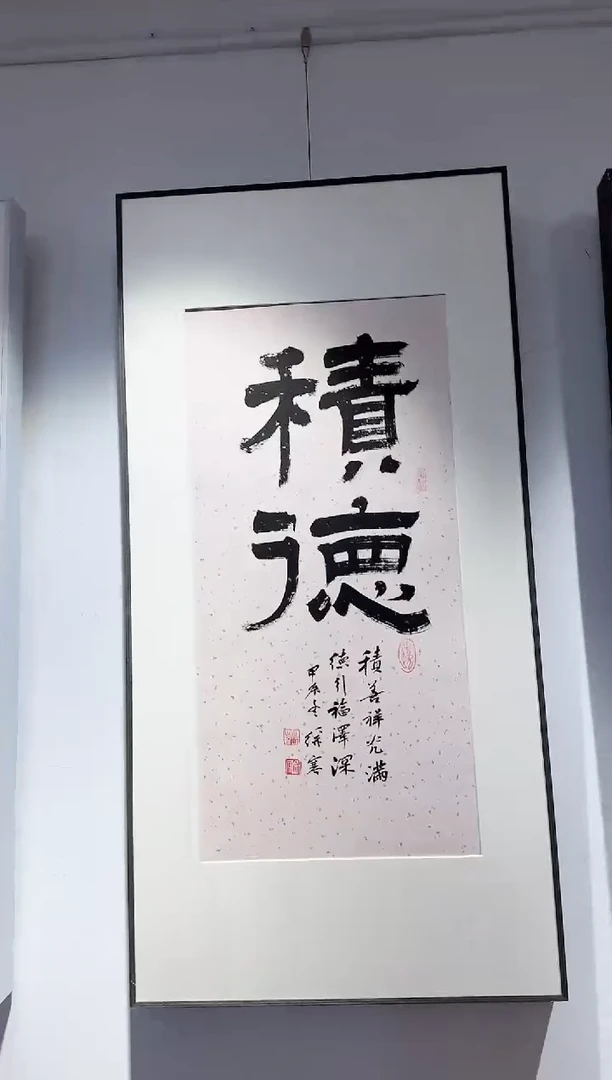 積
德
積善祥光滿
德引福澤深
甲辰冬